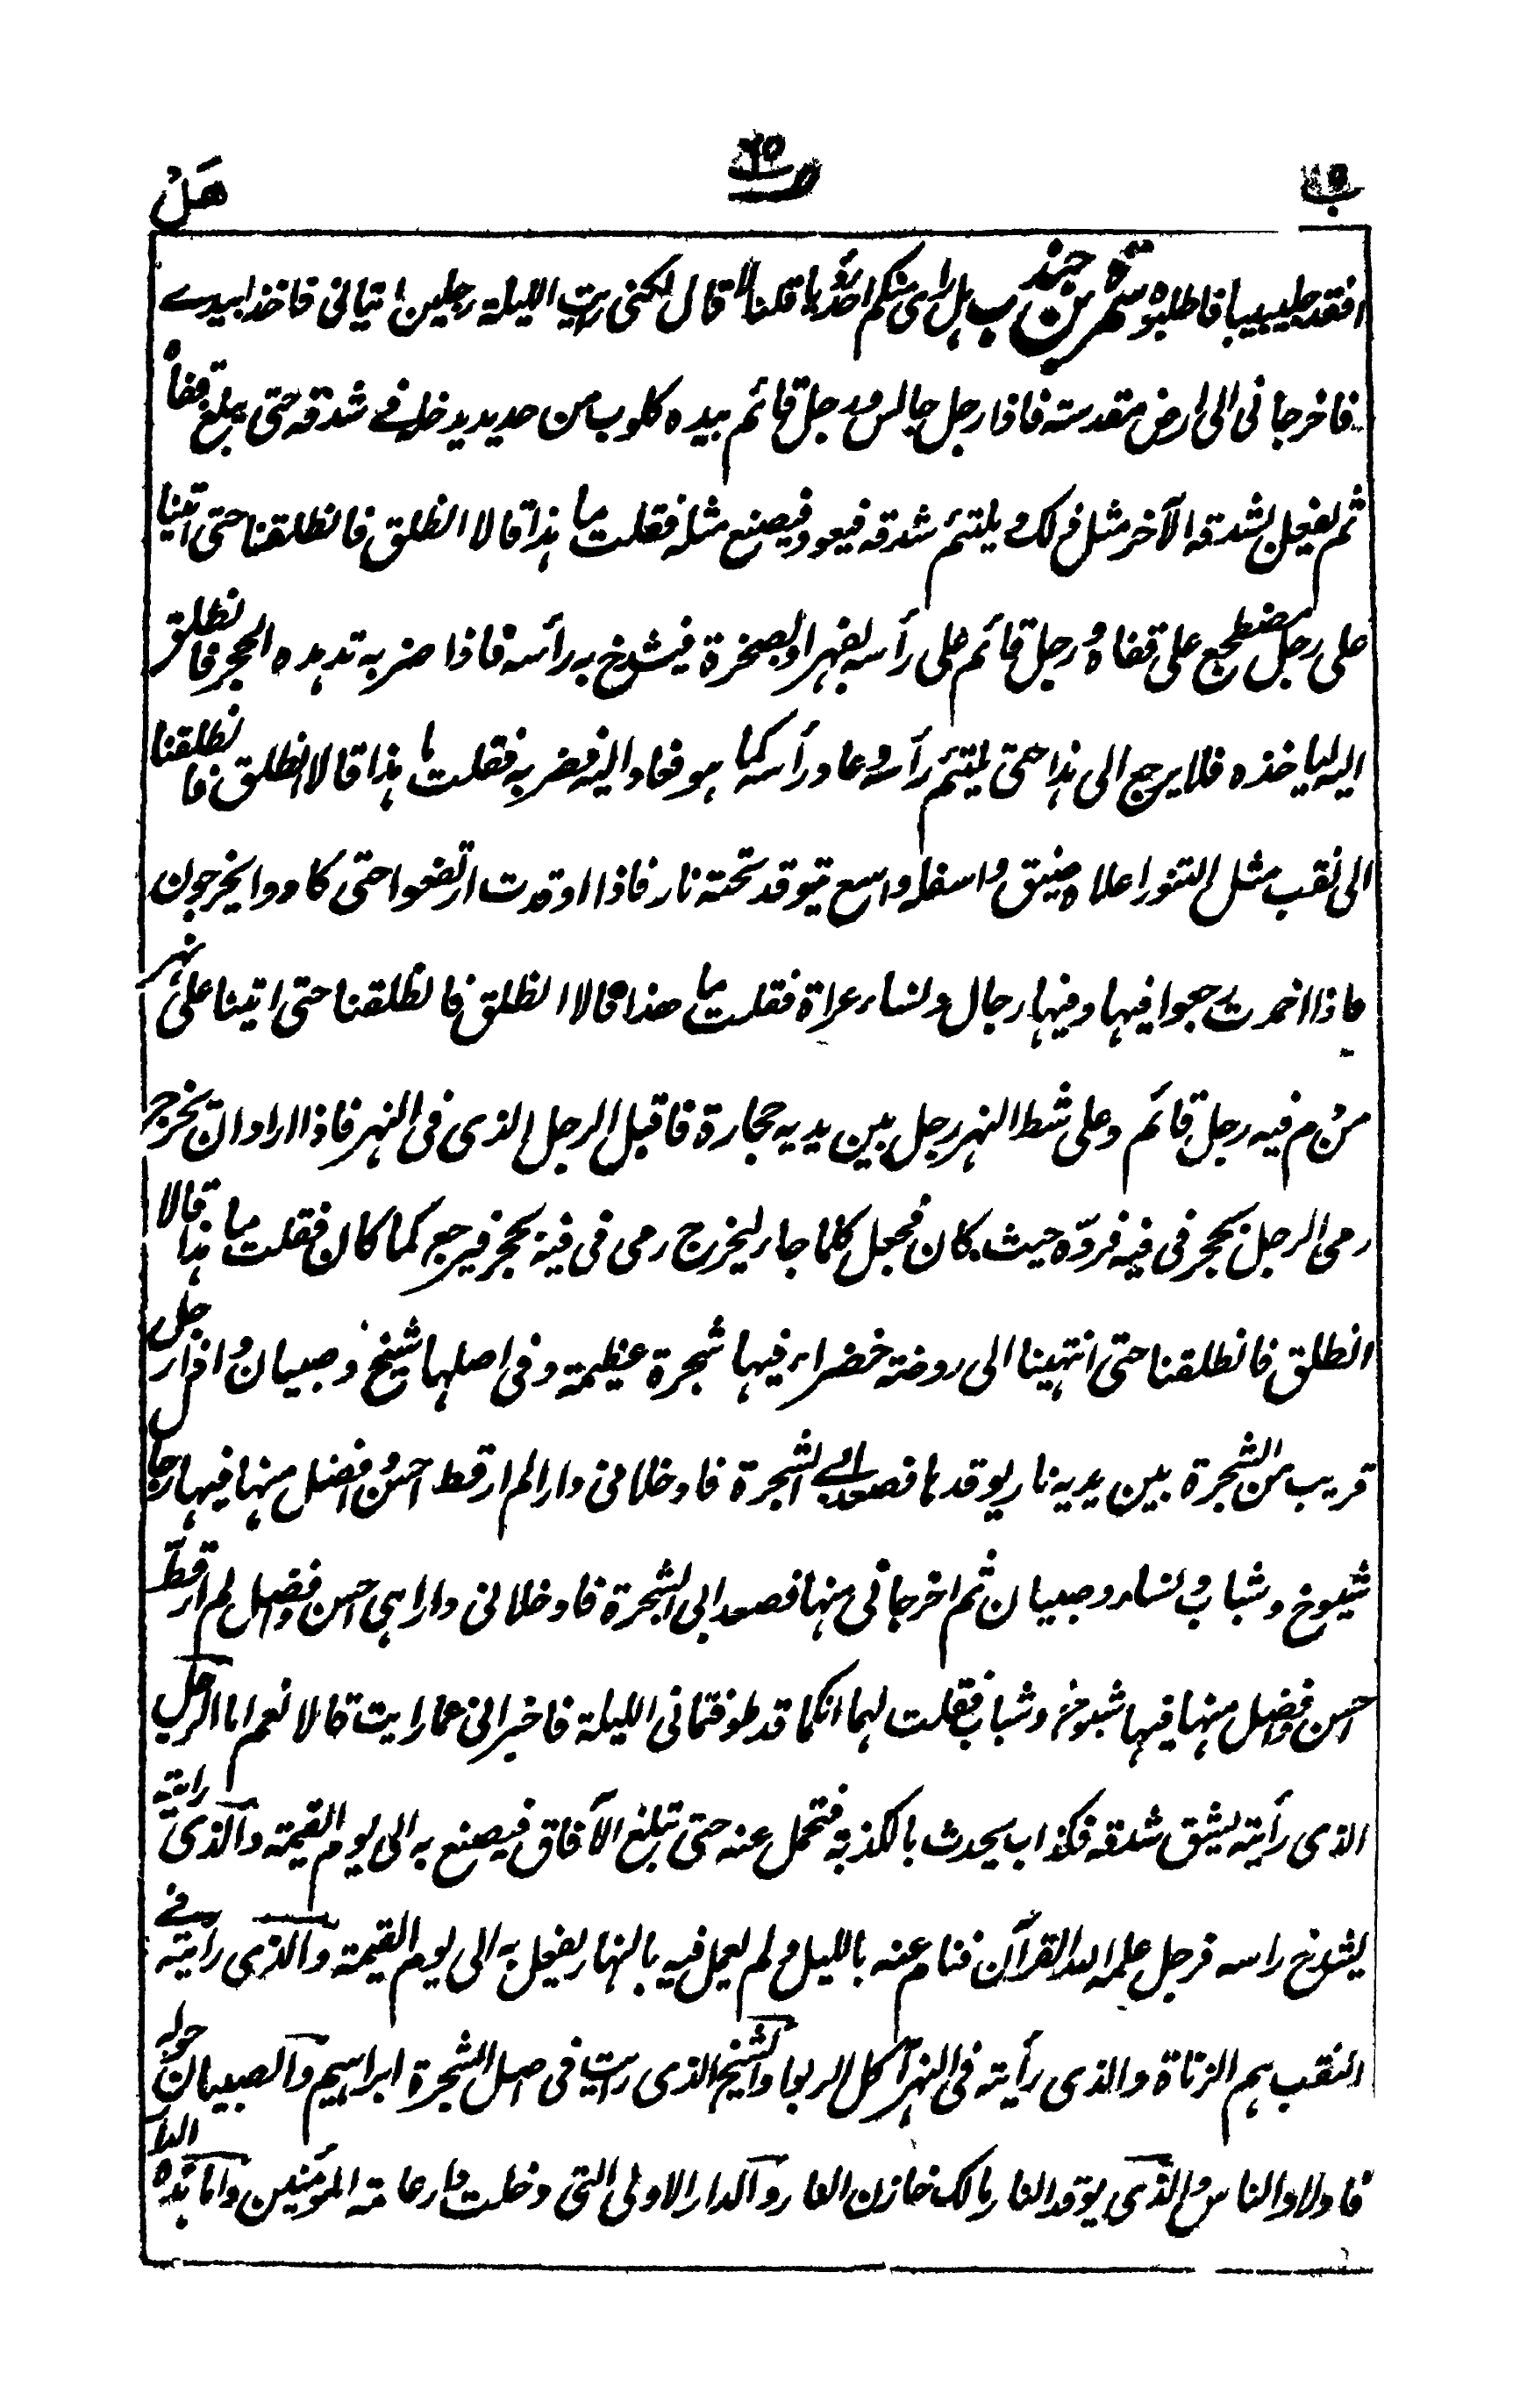 هَلْ
افقد جليبيبا فاطلبوه سمرة بن جندب هل رأى منكم احد رؤيا قلنا لا قال لكنى رايت الليلة رجلين اتيانى فاخذا بيدے
فاخرجانى الى ارض مقدسة فاذا رجل جالس ورجل قائم بيده كلوب من حديد يدخله فے شدقه حتى يبلغ قفاه
ثم يفعل بشدقه الآخر مثل ذلك ويلتئم شدقه فيعود فيصنع مثله فقلت ما هذا قالا انطلق فانطلقنا حتى اتينا
على رجل مضطجع على قفاه ورجل قائم على رأسه بفهر او بصخرة فيشدخ به رأسه فاذا ضربه تدهده الحجر فانطلق
اليه لياخذه فلا يرجع الى هذا حتى يلتئم رأسه وعاد رأسه كما هو فعاد اليه فضربه فقلت ما هذا قالا انطلق فانطلقنا
الى نقب مثل التنور اعلاه ضيق واسفله واسع يتوقد تحته نار فاذا اوقدت ارتفعوا حتى كادوا يخرجون
فاذا اخمدت رجعوا فيها وفيها رجال ونساء عراة فقلت ما هذا قالا انطلق فانطلقنا حتى اتينا على نهر
من دم فيه رجل قائم وعلى شط النهر رجل بين يديه حجارة فاقبل الرجل الذى فى النهر فاذا اراد ان يخرج
رمى الرجل بحجر فى فيه فردّه حيث كان فجعل كلما جاء ليخرج رمى فى فيه بحجر فيرجع كما كان فقلت ما هذا قالا
انطلق فانطلقنا حتى انتهينا الى روضة خضراء فيها شجرة عظيمة وفى اصلها شيخ وصبيان واذا رجل
قريب من الشجرة بين يديه نار يوقدها فصعدا بے الشجرة فادخلانى دارا لم ار قط احسن وافضل منها فيها رجال
شيوخ وشباب ونساء وصبيان ثم اخرجانى منها فصعدا بى الشجرة فادخلانى دارا هى احسن وافضل لم ار قطّ
احسن وافضل منها فيها شيوخ وشباب فقلت لهما انكما قد طوفتمانى الليلة فاخبرانى عما رايت قالا نعم اما الرجل
الذى رأيته يشق شدقه فكذاب يحدث بالكذبة فتحمل عنه حتى تبلغ الآفاق فيصنع به الى يوم القيمة والذى رايته
يشدخ راسه فرجل علمه الله القرآن فنام عنه بالليل ولم يعمل فيه بالنهار يفعل به الى يوم القيمة والذى رأيته فے
النقب هم الزناة والذى رأيته فى النهر آكل الربوا والشيخ الذى رايت فى اصل الشجرة ابراهيم والصبيان حوله
فاولاد الناس والذى يوقد النار مالك خازن النار والدار الاولى التى دخلت دار عامة المؤمنين واما هذه الدار